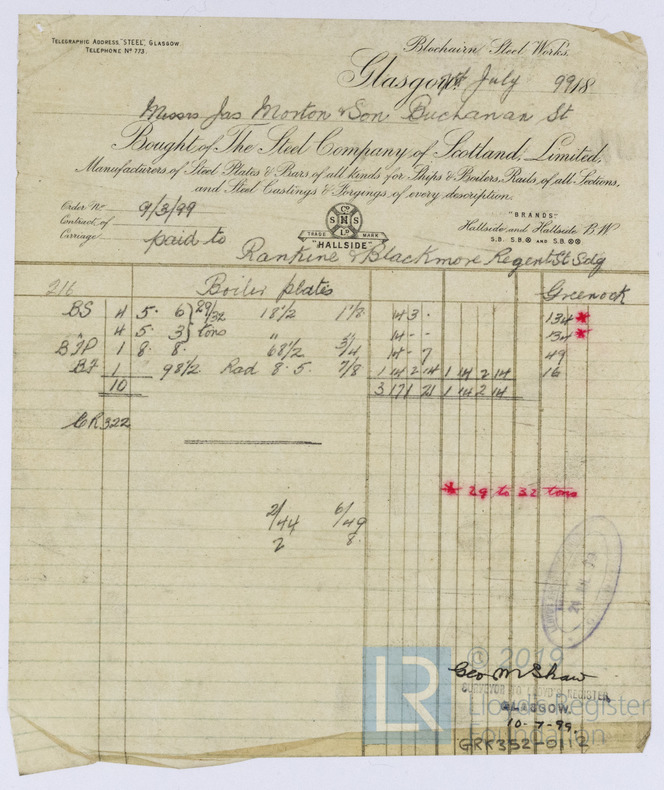 TELEGRAPHIC ADDRESS "STEEL", GLASGOW.
TELEPHONE Nº 773.
Blochairn Steel Works.
Glasgow, July 9918
Messrs Jas Morton & Son Buchanan St
Bought of The Steel Company of Scotland, Limited,
Manufacturers of Steel Plates & Bars of all kinds for Ships & Boilers, Rails, of all Sections,
and Steel Castings & Forgings of every description.
Order Nº 9/3/99
Contract of
Carriage paid to
Cº
S H S
Lº
TRADE MARK
"HALLSIDE"
"BRANDS"
Hallside and Hallside B.W
S.B. S.B.® AND S.B.®®
Rankine & Blackmore Regent St Sdg
216 Boiler plates Greenock
BS 4 5. 6 } 29/32 18 1/2 1 1/8 14 3 . 134 *
" 4 5. 3 } tons " " 14 - - 134 *
BIP 1 8. 8. 68 1/2 3/4 14 - 7 49
BF 1 98 1/2 Rad 8. 5. 7/8 1 14 2 14 1 14 2 14 16
10 3 17 1 21 1 14 2 14
CR 322
* 29 to 32 tons
2/44 6/49
2 8.
LR
© 2019
Lloyd's Register
Foundation
Geo M Shaw
SURVEYOR TO LLOYD'S REGISTER,
GLASGOW.
10-7-99.
GRK352-0112